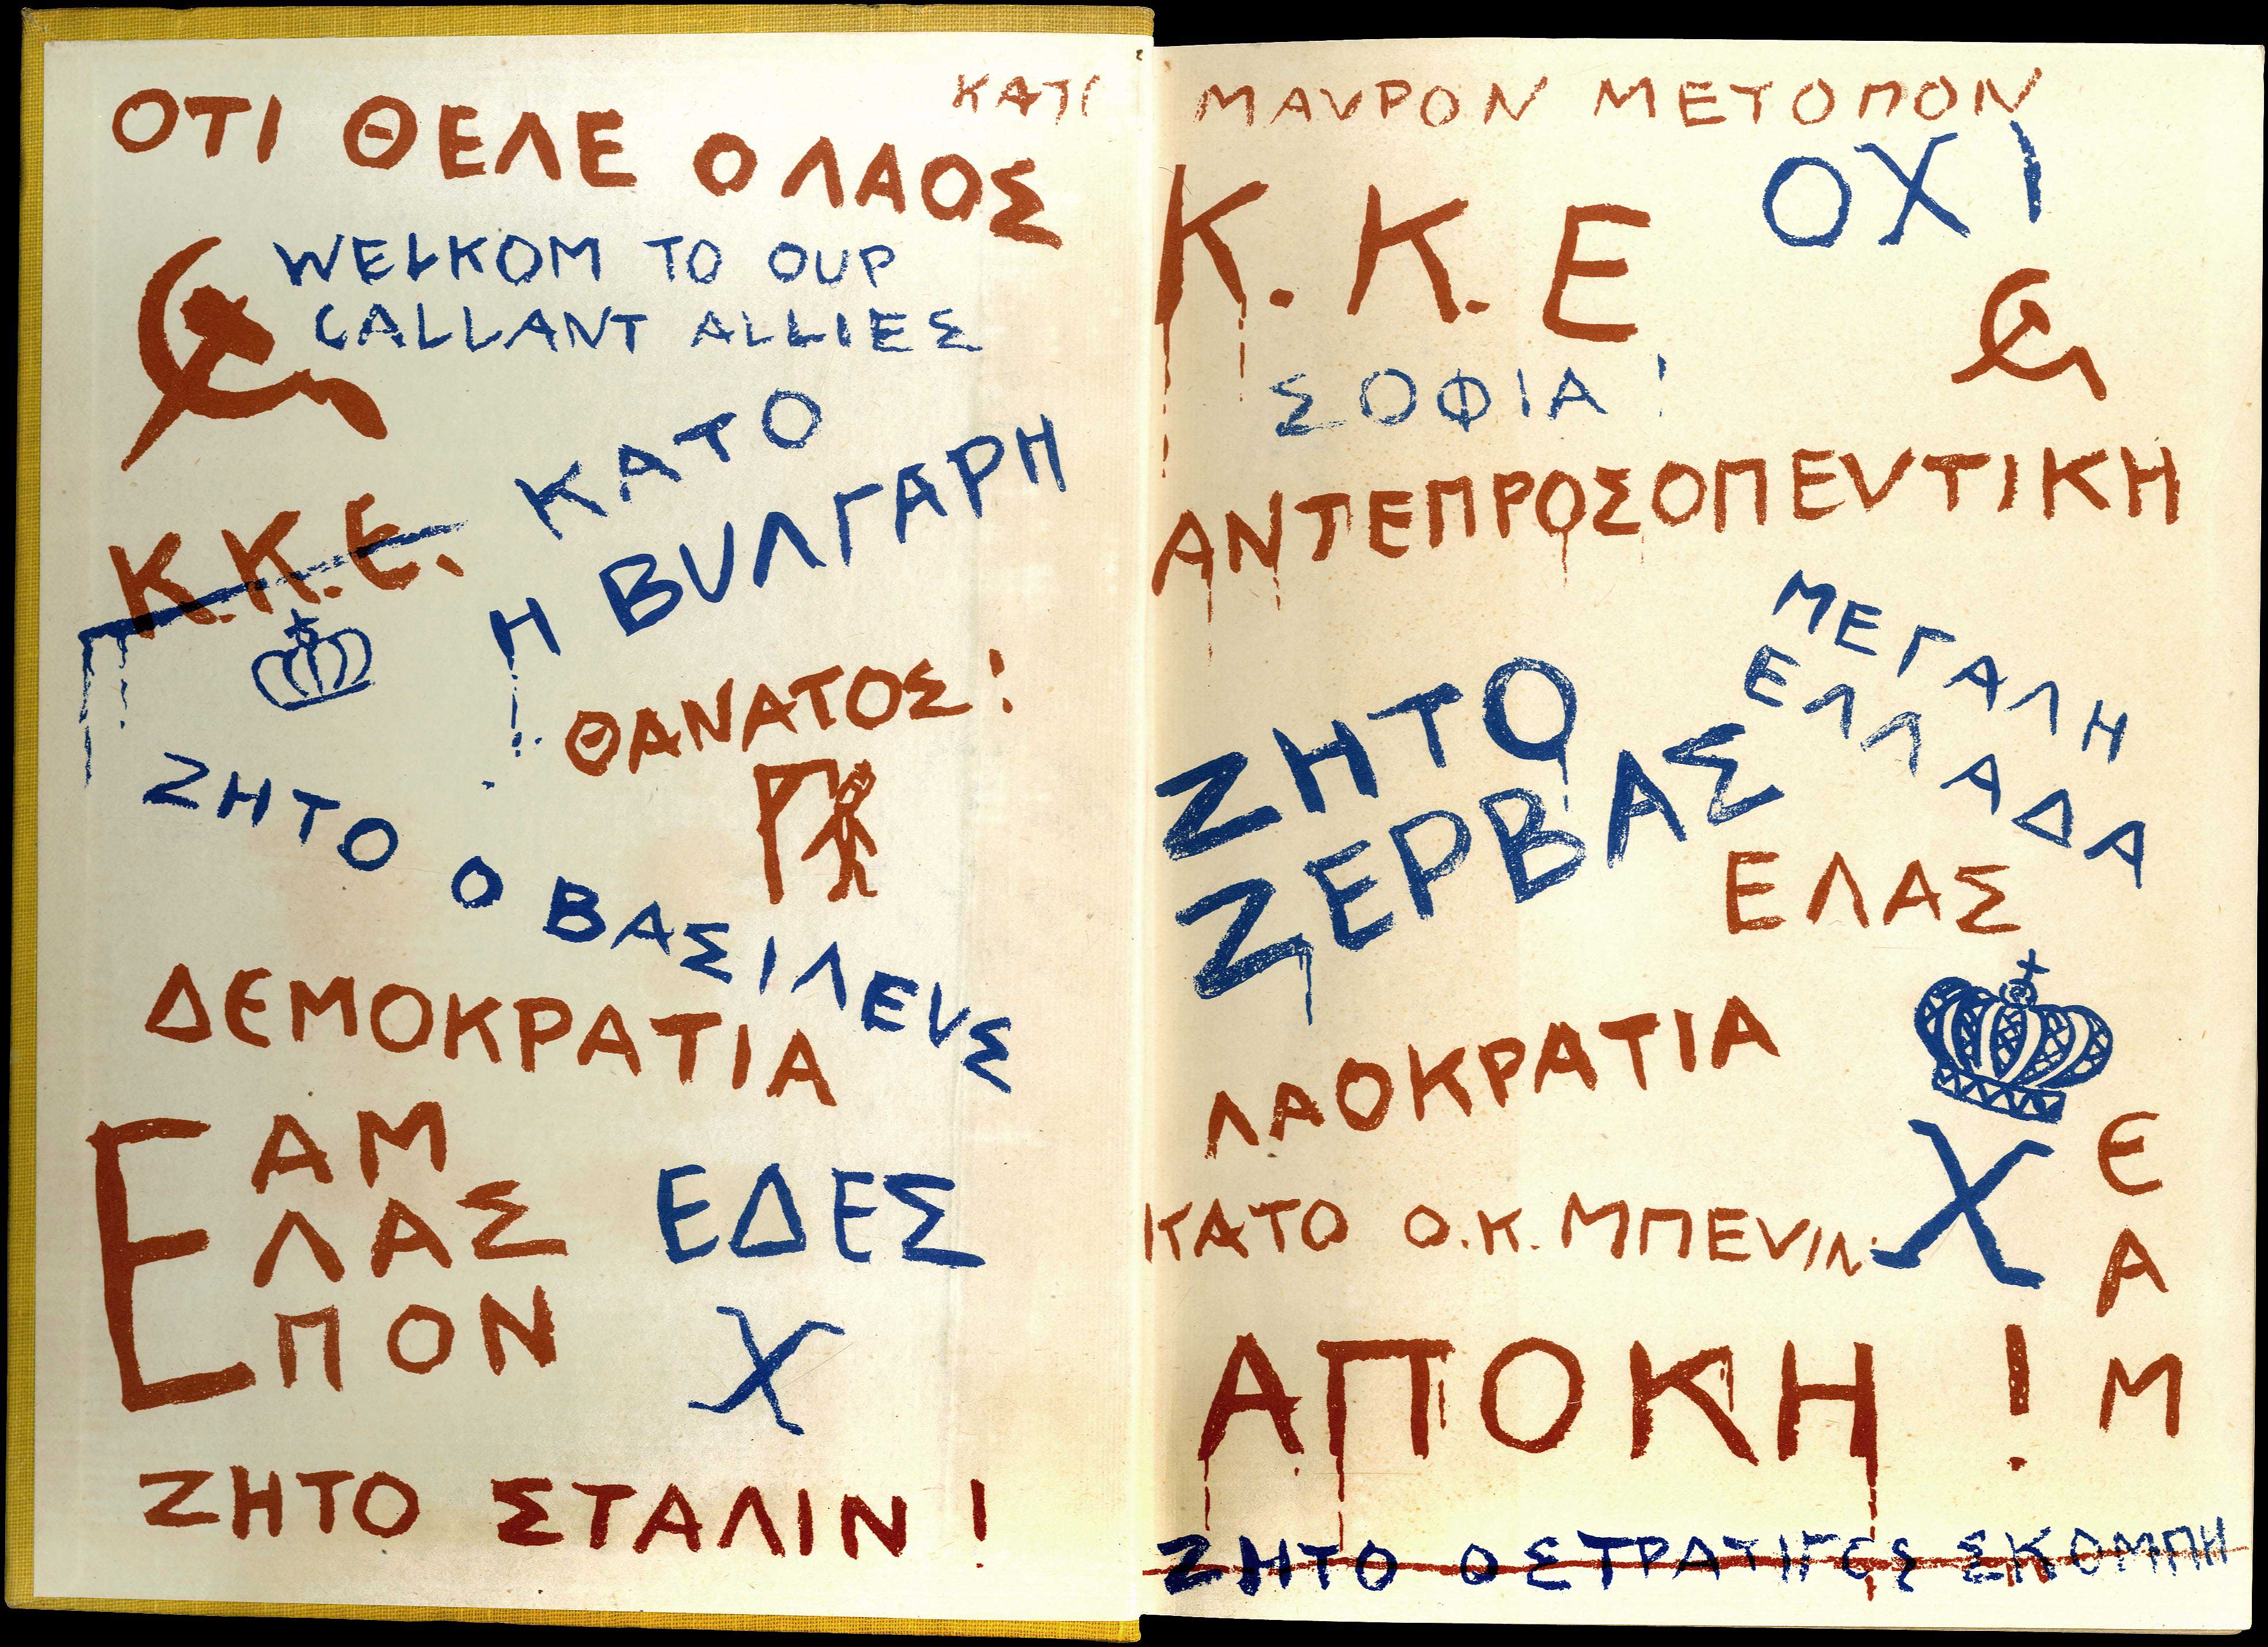 ΟΤΙ ΘΕΛΕ Ο ΛΑΟΣ
WELKOM TO OUP
GALLANT ALLIEΣ
ΚΑΤΟ
Η ΒΥΛΓΑΡΗ
Κ.Κ.Ε.
ΘΑΝΑΤΟΣ!
ΖΗΤΟ Ο ΒΑΣΙΛΕΥΣ
ΔΕΜΟΚΡΑΤΙΑ
ΕΑΜ
ΕΛΑΣ
ΕΠΟΝ
ΕΔΕΣ
Χ
ΖΗΤΟ ΣΤΑΛΙΝ!
ΜΑΥΡΟΝ ΜΕΤΟΠΟΝ
ΟΧΙ
Κ.Κ.Ε
ΣΟΦΙΑ!
ΑΝΤΕΠΡΟΣΟΠΕΥΤΙΚΗ
ΜΕΓΑΛΗ
ΕΛΛΑΔΑ
ΖΗΤΟ
ΖΕΡΒΑΣ
ΕΛΑΣ
ΛΑΟΚΡΑΤΙΑ
Χ
ΕΑΜ
ΚΑΤΟ Ο.Κ. ΜΠΕΥΙΝ
ΑΠΟΚΗ!
ΖΗΤΟ Ο ΣΤΡΑΤΙΓΟΣ ΣΚΟΜΠΗ